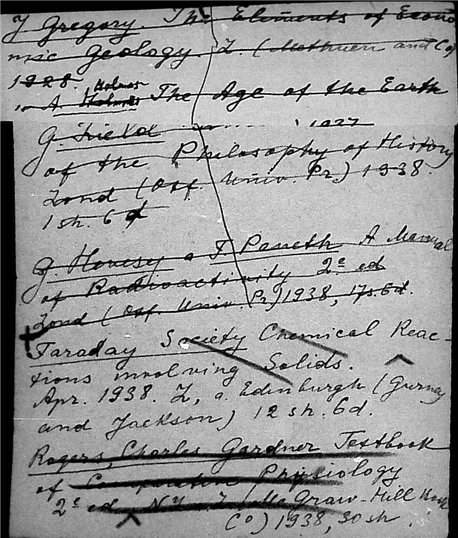 J Gregory. The Elements of Econo
mic Geology. L. (Methuen and Co)
1928.
A Holmes The Age of the Earth
1927
G Field
of the Philosophy of History
Lond (Oxf. Univ. Pr.) 1938.
1 sh. 6 d
G Hevesy a F Paneth A Manual
of Radioactivity 2e ed
Lond (Oxf. Univ. Pr) 1938, 17s.6d.
Faraday Society Chemical Reac-
tions involving Solids.
Apr. 1938. L, a. Edinburgh (Gurney
and Jackson) 12 sh. 6d.
Rogers, Charles Gardner Textbook
of Comparative Physiology
2e ed N.Y. L (McGraw-Hill Book
Co) 1938, 30 sh.